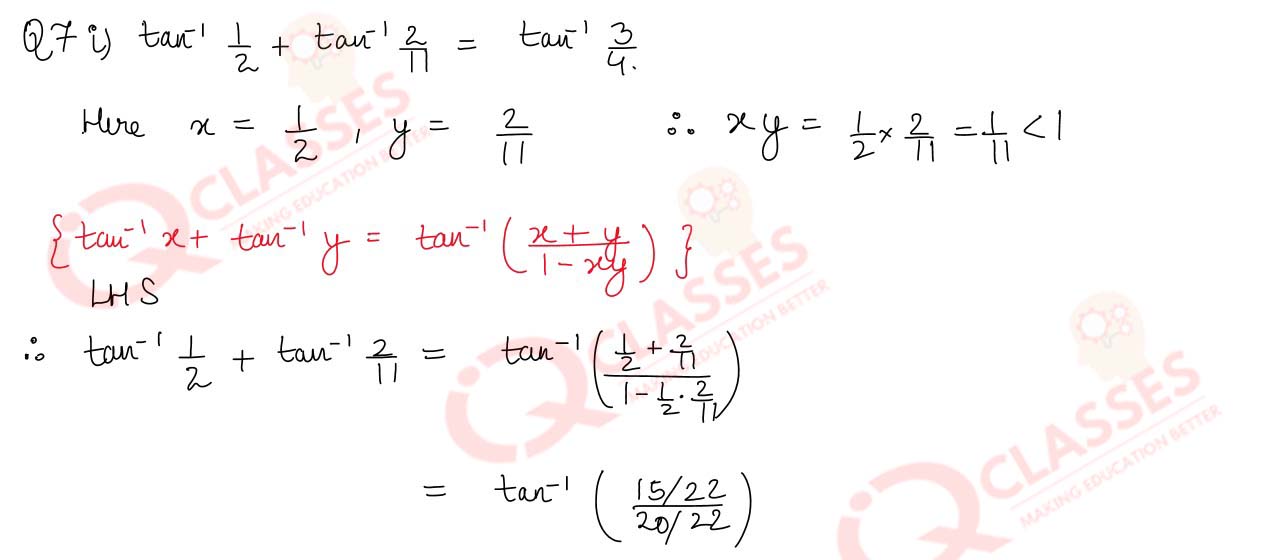 Q7 i) tan⁻¹ 1/2 + tan⁻¹ 2/11 = tan⁻¹ 3/4.
Here x = 1/2 , y = 2/11 ∴ xy = 1/2 × 2/11 = 1/11 < 1
{ tan⁻¹ x + tan⁻¹ y = tan⁻¹ ( (x + y)/(1 - xy) ) }
LHS
∴ tan⁻¹ 1/2 + tan⁻¹ 2/11 = tan⁻¹ ( (1/2 + 2/11)/(1 - 1/2 · 2/11) )
= tan⁻¹ ( (15/22)/(20/22) )
IQ CLASSES
MAKING EDUCATION BETTER
IQ CLASSES
MAKING EDUCATION BETTER
IQ CLASSES
MAKING EDUCATION BETTER